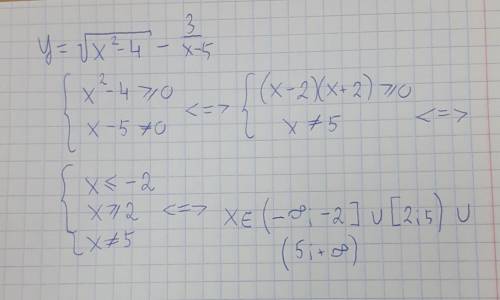 y = √(x² - 4) - 3/(x-5)
{ x² - 4 ⩾ 0 ; x - 5 ≠ 0 <=> { (x-2)(x+2) ⩾ 0 ; x ≠ 5 <=>
{ x ⩽ -2 ; x ⩾ 2 ; x ≠ 5 <=> x ∈ (-∞; -2] ∪ [2; 5) ∪
(5; +∞)